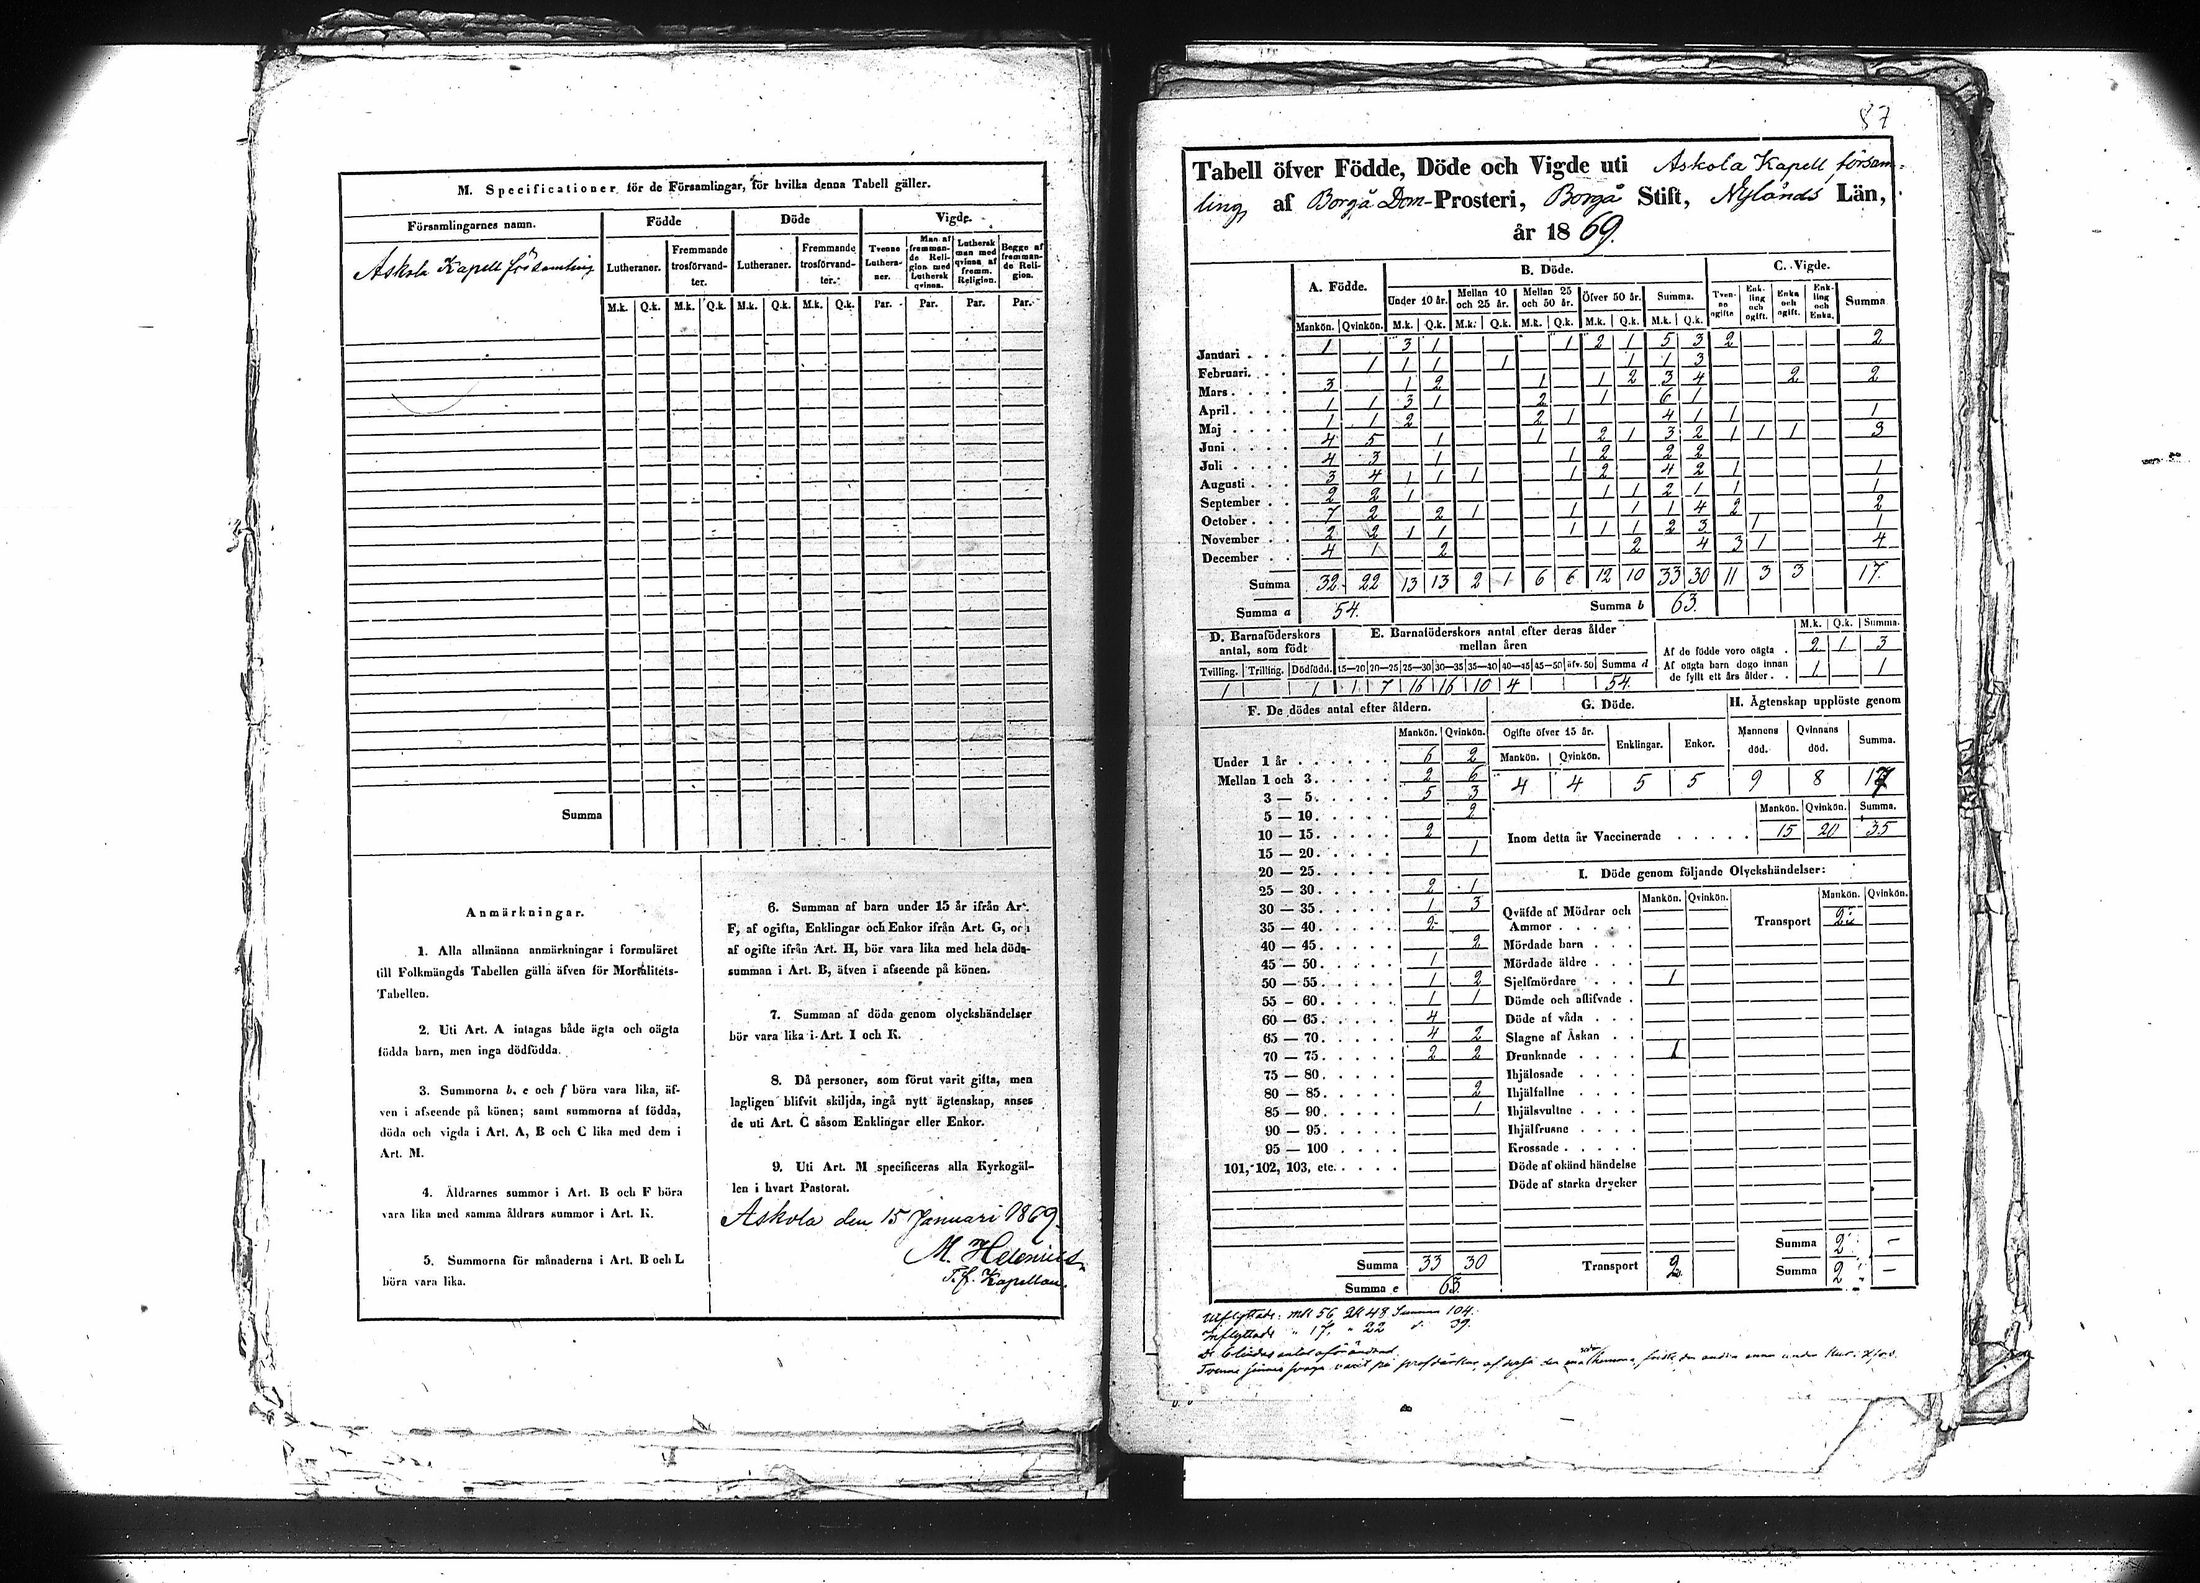 M. Specificationer för de Församlingar, för hvilka denna Tabell gäller.
Församlingarnes namn.
Födde
Döde
Vigde.
Lutheraner.
Fremmande trosförvandter.
Lutheraner.
Fremmande trosförvandter.
Tvenne Lutheraner.
Man af fremmande Religion med Luthersk qvinna.
Luthersk man med qvinna af fremm. Religion.
Begge af fremmande Religion.
M.k. Q.k. M.k. Q.k. M.k. Q.k. M.k. Q.k. Par. Par. Par. Par.
Askola Kapell församling
Summa
Anmärkningar.
1. Alla allmänna anmärkningar i formuläret
till Folkmängds Tabellen gälla äfven för Mortalitets-
Tabellen.
2. Uti Art. A intagas både ägta och oägta
födda barn, men inga dödfödda.
3. Summorna b, e och f böra vara lika, äf-
ven i afseende på könen; samt summorna af födda,
döda och vigda i Art. A, B och C lika med dem i
Art. M.
4. Åldrarnes summor i Art. B och F böra
vara lika med samma åldrars summor i Art. K.
5. Summorna för månaderna i Art. B och L
böra vara lika.
6. Summan af barn under 15 år ifrån Art.
F, af ogifta, Enklingar och Enkor ifrån Art. G, och
af ogifte ifrån Art. H, bör vara lika med hela döds-
summan i Art. B, äfven i afseende på könen.
7. Summan af döda genom olyckshändelser
bör vara lika i Art. I och K.
8. Då personer, som förut varit gifta, men
lagligen blifvit skiljda, ingå nytt ägtenskap, anses
de uti Art. C såsom Enklingar eller Enkor.
9. Uti Art. M specificeras alla Kyrkogäl-
len i hvart Pastorat.
Askola den 15 Januari 1869.
M. Helenius
T.f. Kapellan.
87
Tabell öfver Födde, Döde och Vigde uti Askola Kapell församling,
af Borgå Dom-Prosteri, Borgå Stift, Nylands Län,
år 1869.
A. Födde.
B. Döde.
C. Vigde.
Under 10 år. Mellan 10 och 25 år. Mellan 25 och 50 år. Öfver 50 år. Summa. Tvenne ogifte Enkling och ogift. Enka och ogift. Enkling och Enka. Summa
Mankön. Qvinkön. M.k. Q.k. M.k. Q.k. M.k. Q.k. M.k. Q.k. M.k. Q.k.
Januari 1 3 1 1 2 1 5 3 2 2
Februari 1 1 1 1 1 1 3
Mars 3 1 2 1 1 2 3 4 2 2
April 1 1 3 1 2 1 6 1
Maj 1 1 2 2 1 4 1 1 1
Juni 4 5 1 1 2 1 3 2 1 1 1 3
Juli 4 3 1 1 2 2 2
Augusti 3 4 1 1 1 1 2 4 2 1 1
September 2 2 1 1 1 2 1 1 1
October 7 2 2 1 1 1 1 4 2 2
November 2 2 1 1 1 1 1 2 3 1 1
December 4 1 2 2 4 3 1 4
Summa 32 22 13 13 2 1 6 6 12 10 33 30 11 3 3 17.
Summa a 54. Summa b 63.
D. Barnaföderskors antal, som födt
E. Barnaföderskors antal efter deras ålder mellan åren
Tvilling. Trilling. Dödfödd. 15—20 20—25 25—30 30—35 35—40 40—45 45—50 öfv. 50 Summa d
1 1 1 7 16 16 10 4 54.
M.k. Q.k. Summa.
Af de födde voro oägta 2 1 3
Af oägta barn dogo innan de fyllt ett års ålder 1 1
F. De dödes antal efter åldern.
Mankön. Qvinkön.
Under 1 år 6 2
Mellan 1 och 3 2 6
3 — 5 5 3
5 — 10 2
10 — 15 2
15 — 20 1
20 — 25
25 — 30 2 1
30 — 35 1 3
35 — 40 2
40 — 45 2
45 — 50 1
50 — 55 1 2
55 — 60 1 1
60 — 65 4
65 — 70 4 2
70 — 75 2 2
75 — 80
80 — 85 2
85 — 90 1
90 — 95
95 — 100
101, 102, 103, etc.
Summa 33 30
Summa e 63.
G. Döde.
Ogifte öfver 15 år. Enklingar. Enkor.
Mankön. Qvinkön.
4 4 5 5
H. Ägtenskap upplöste genom
Mannens död. Qvinnans död. Summa.
9 8 17
Mankön. Qvinkön. Summa.
Inom detta år Vaccinerade 15 20 35
I. Döde genom följande Olyckshändelser:
Mankön. Qvinkön.
Mankön. Qvinkön.
Qväfde af Mödrar och Ammor
Mördade barn
Mördade äldre
Sjelfmördare 1
Dömde och aflifvade
Döde af våda
Slagne af Åskan
Drunknade 1
Ihjälosade
Ihjälfallne
Ihjälsvultne
Ihjälfrusne
Krossade
Döde af okänd händelse
Döde af starka drycker
Transport 2.
Transport 2
Summa 2 —
Summa 2 —
Utflyttade: mk 56 Qk 48 Summa 104.
Inflyttade " 17, " 22 39.